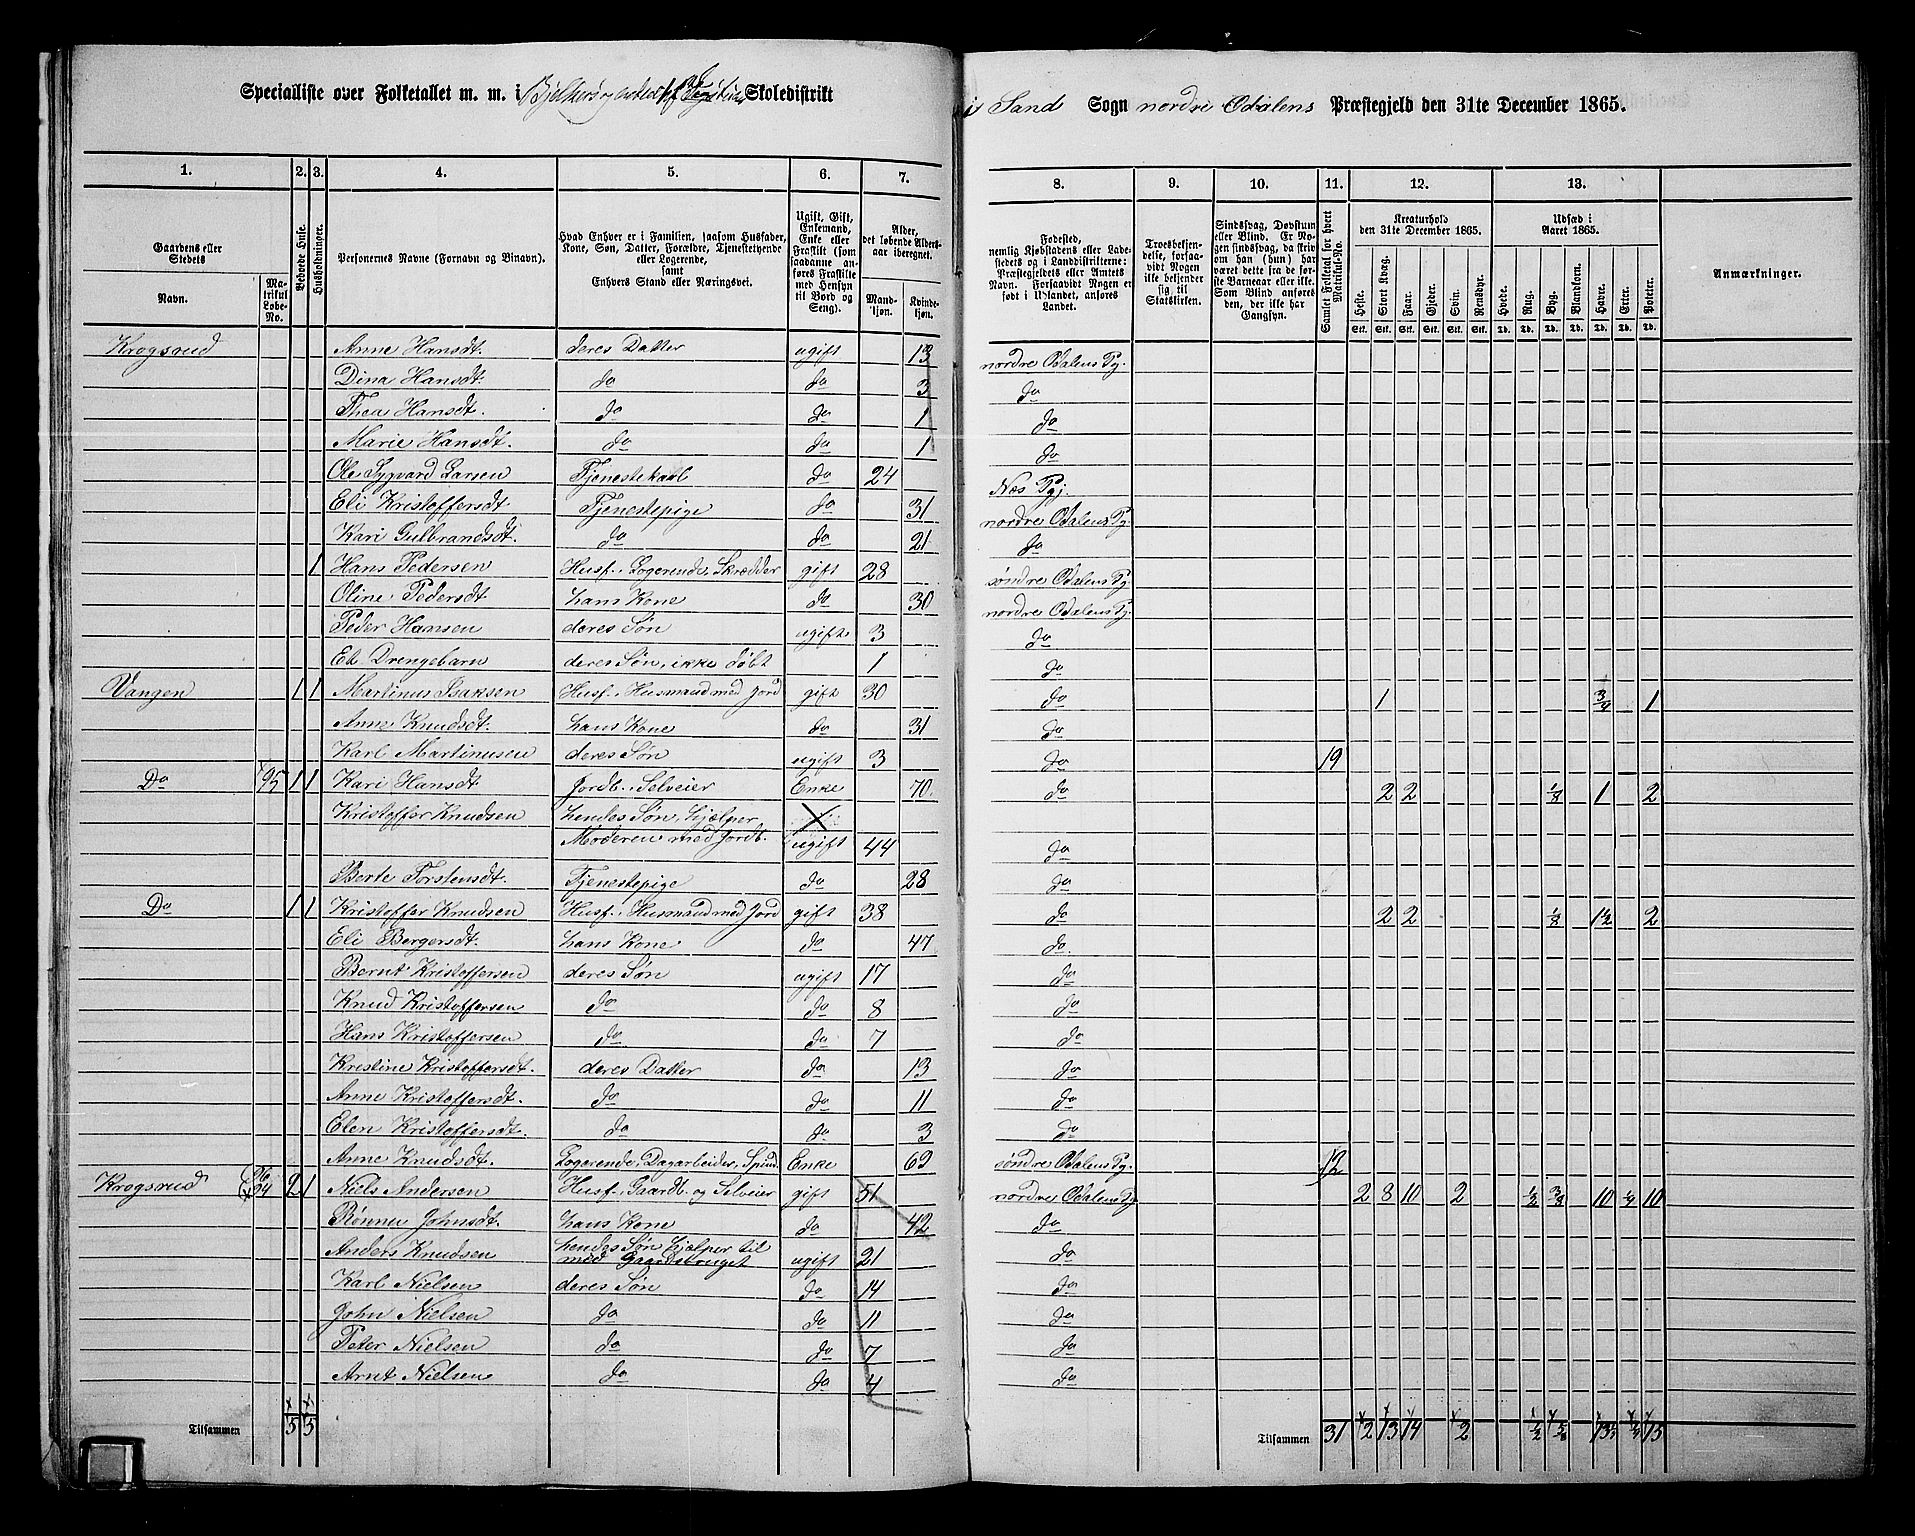 Specialliste over Folketallet m. m. i Skoledistrikt
i Sand Sogn nordre Odalens Præstegjeld den 31te December 1865.
1. 2. 3. 4. 5. 6. 7.
8. 9. 10. 11. 12. 13.
Gaardens eller Stedets
Navn.
Matrikul Løbe-No.
Beboede Huse.
Husholdninger.
Personernes Navne (Fornavn og Binavn).
Hvad Enhver er i Familien, saasom Husfader, Kone, Søn, Datter, Forældre, Tjenestetyende eller Logerende, samt Enhvers Stand eller Næringsvei.
Ugift, Gift, Enkemand, Enke eller Fraskilt (som saadanne anføres Fraskilte med Hensyn til Bord og Seng).
Alder, det løbende Alders-aar iberegnet.
Mandkjøn. Kvindekjøn.
Fødested, nemlig Kjøbstadens eller Ladestedets og i Landdistrikterne: Præstegjeldets eller Amtets Navn. Forsaavidt Nogen er født i Udlandet, anføres Landet.
Troesbekjendelse, forsaavidt Nogen ikke bekjender sig til Statskirken.
Sindssvag, Døvstum eller Blind. Er Nogen sindssvag, da skrives om han (hun) har været dette fra de første Barneaar eller ikke. Som Blind anføres den, der ikke har Gangsyn.
Samlet Folketal for hvert Matrikul-No.
Kreaturhold den 31te December 1865.
Heste. Stort Kvæg. Faar. Gjeder. Svin. Rensdyr.
Stk. Stk. Stk. Stk. Stk. Stk.
Udsæd i Aaret 1865.
Hvede. Rug. Byg. Blandkorn. Havre. Erter. Poteter.
Td. Td. Td. Td. Td. Td. Td.
Anmærkninger.
Krogsrud Anne Hansdt. deres Datter ugift 13 nordre Odalens Pg.
Dina Hansdt. do do 3 do
Thea Hansdt. do do 1 do
Marie Hansdt. do do 1 do
Ole Sygvard Larsen Tjenestekarl do 24 Næs Pgj.
Eli Kristoffersdt Tjenestepige do 31 nordre Odalens Pg.
Kari Gulbrandsdt. do do 21 do
1 Hans Pedersen Husf., Logerende, Skrædder gift 28 søndre Odalens Pg.
Oline Pedersdt hans Kone do 30 nordre Odalens Pg.
Peder Hansen deres Søn ugift 3 do
Et Drengebarn deres Søn, ikke døbt 1 do
Vangen 1 1 Martinus Isaksen Husf., Husmand med Jord gift 30 do 1 3/4 1
Anne Knudsdt. hans Kone do 31 do
Karl Martinusen deres Søn ugift 3 do 19
Do 95 1 1 Kari Hansdt Jordb., Selveier Enke 70 do 2 2 1/8 1 2
Kristoffer Knudsen hendes Søn, hjælper
Moderen med Jordb. ugift 44 do
Berte Torstensdt. Tjenestepige do 28 do
Do 1 1 Kristoffer Knudsen Husf., Husmand med Jord gift 38 do 2 2 1/8 1 1/2 2
Eli Bergersdt. hans Kone do 47 do
Bernt Kristoffersen deres Søn ugift 17 do
Knud Kristoffersen do do 8 do
Hans Kristoffersen do do 7 do
Kristine Kristoffersdt. deres Datter do 13 do
Anne Kristoffersdt. do do 11 do
Elen Kristoffersdt. do do 3 do
Anne Knudsdt. Logerende, Dagarbeider, Spind. Enke 69 søndre Odalens Pg. 12
Krogsrud 96 94 2 1 Niels Andersen Husf., Gaardb. og Selveier gift 51 nordre Odalens Pg 2 8 10 2 1/2 3/8 10 1/4 10
Rønnu Johnsdt. hans Kone do 42 do
Anders Knudsen hendes Søn hjælper til
med Gaardsbruget ugift 21 do
Karl Nielsen deres Søn do 14 do
John Nielsen do do 11 do
Peter Nielsen do do 7 do
Arnt Nielsen do do 4 do
Tilsammen 5 5
Tilsammen 31 2 13 14 2 1/2 5/8 1/4 15